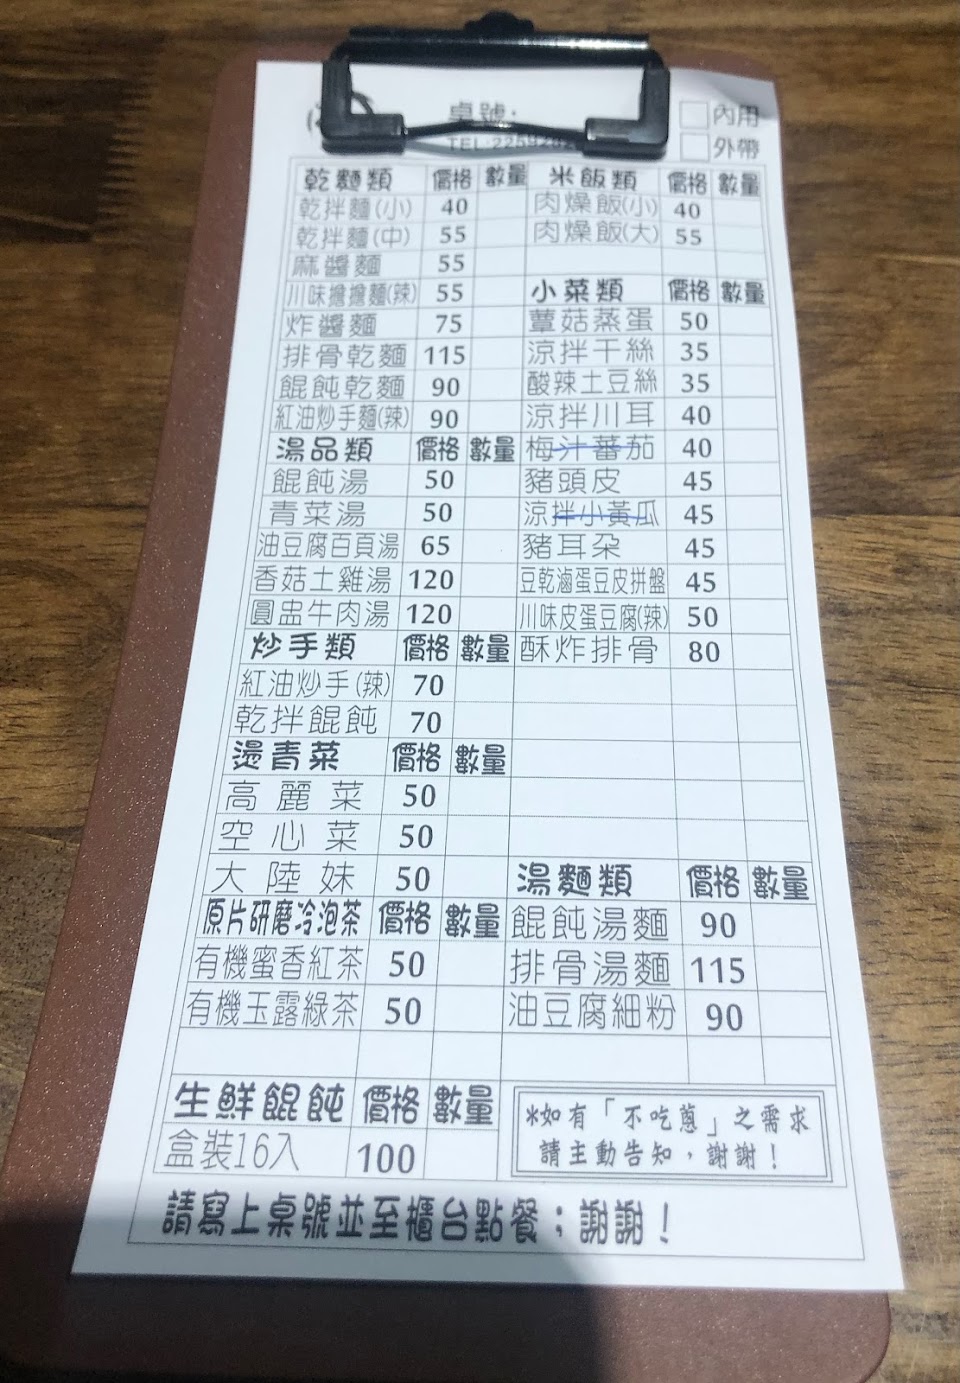 桌號:
內用
TEL:2259282
外帶
乾麵類 價格 數量
乾拌麵(小) 40
乾拌麵(中) 55
麻醬麵 55
川味擔擔麵(辣) 55
炸醬麵 75
排骨乾麵 115
餛飩乾麵 90
紅油炒手麵(辣) 90
湯品類 價格 數量
餛飩湯 50
青菜湯 50
油豆腐百頁湯 65
香菇土雞湯 120
圓盅牛肉湯 120
炒手類 價格 數量
紅油炒手(辣) 70
乾拌餛飩 70
燙青菜 價格 數量
高麗菜 50
空心菜 50
大陸妹 50
原片研磨冷泡茶 價格 數量
有機蜜香紅茶 50
有機玉露綠茶 50
生鮮餛飩 價格 數量
盒裝16入 100
米飯類 價格 數量
肉燥飯(小) 40
肉燥飯(大) 55
小菜類 價格 數量
蕈菇蒸蛋 50
涼拌干絲 35
酸辣土豆絲 35
涼拌川耳 40
梅汁蕃茄 40
豬頭皮 45
涼拌小黃瓜 45
豬耳朵 45
豆乾滷蛋豆皮拼盤 45
川味皮蛋豆腐(辣) 50
酥炸排骨 80
湯麵類 價格 數量
餛飩湯麵 90
排骨湯麵 115
油豆腐細粉 90
*如有「不吃蔥」之需求
請主動告知，謝謝！
請寫上桌號並至櫃台點餐；謝謝！